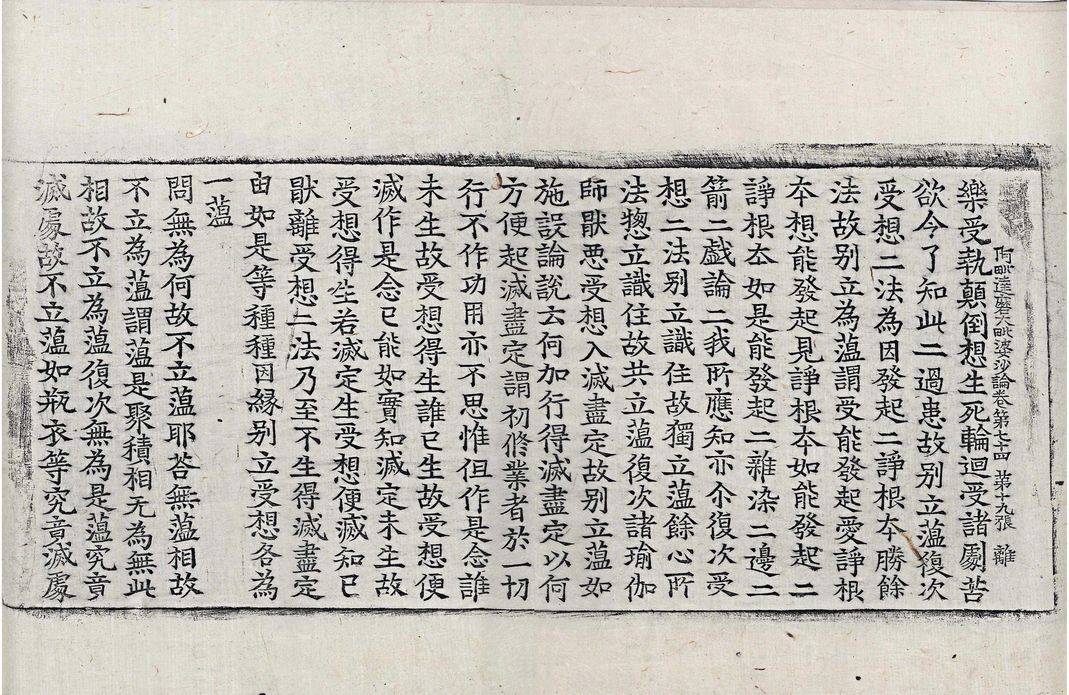 阿毗達磨大毗婆沙論卷第七十四 第十九張 離
樂受執顛倒想生死輪迴受諸劇苦
欲令了知此二過患故别立蘊復次
受想二法為因發起二諍根夲勝餘
法故别立為蘊謂受能發起愛諍根
夲想能發起見諍根夲如能發起二
諍根夲如是能發起二雜染二邊二
箭二戲論二我所應知亦尒復次受
想二法别立識住故獨立蘊餘心所
法惣立識住故共立蘊復次諸瑜伽
師猒惡受想入滅盡定故别立蘊如
施設論說云何加行得滅盡定以何
方便起滅盡定謂初修業者於一切
行不作功用亦不思惟但作是念誰
未生故受想得生誰已生故受想便
滅作是念已能如實知滅定未生故
受想得生若滅定生受想便滅知已
猒離受想二法乃至不生得滅盡定
由如是等種種因緣别立受想各為
一蘊
問無為何故不立蘊耶荅無蘊相故
不立為蘊謂蘊是聚積相无為無此
相故不立為蘊復次無為是蘊究竟
滅處故不立蘊如瓶衣等究竟滅處